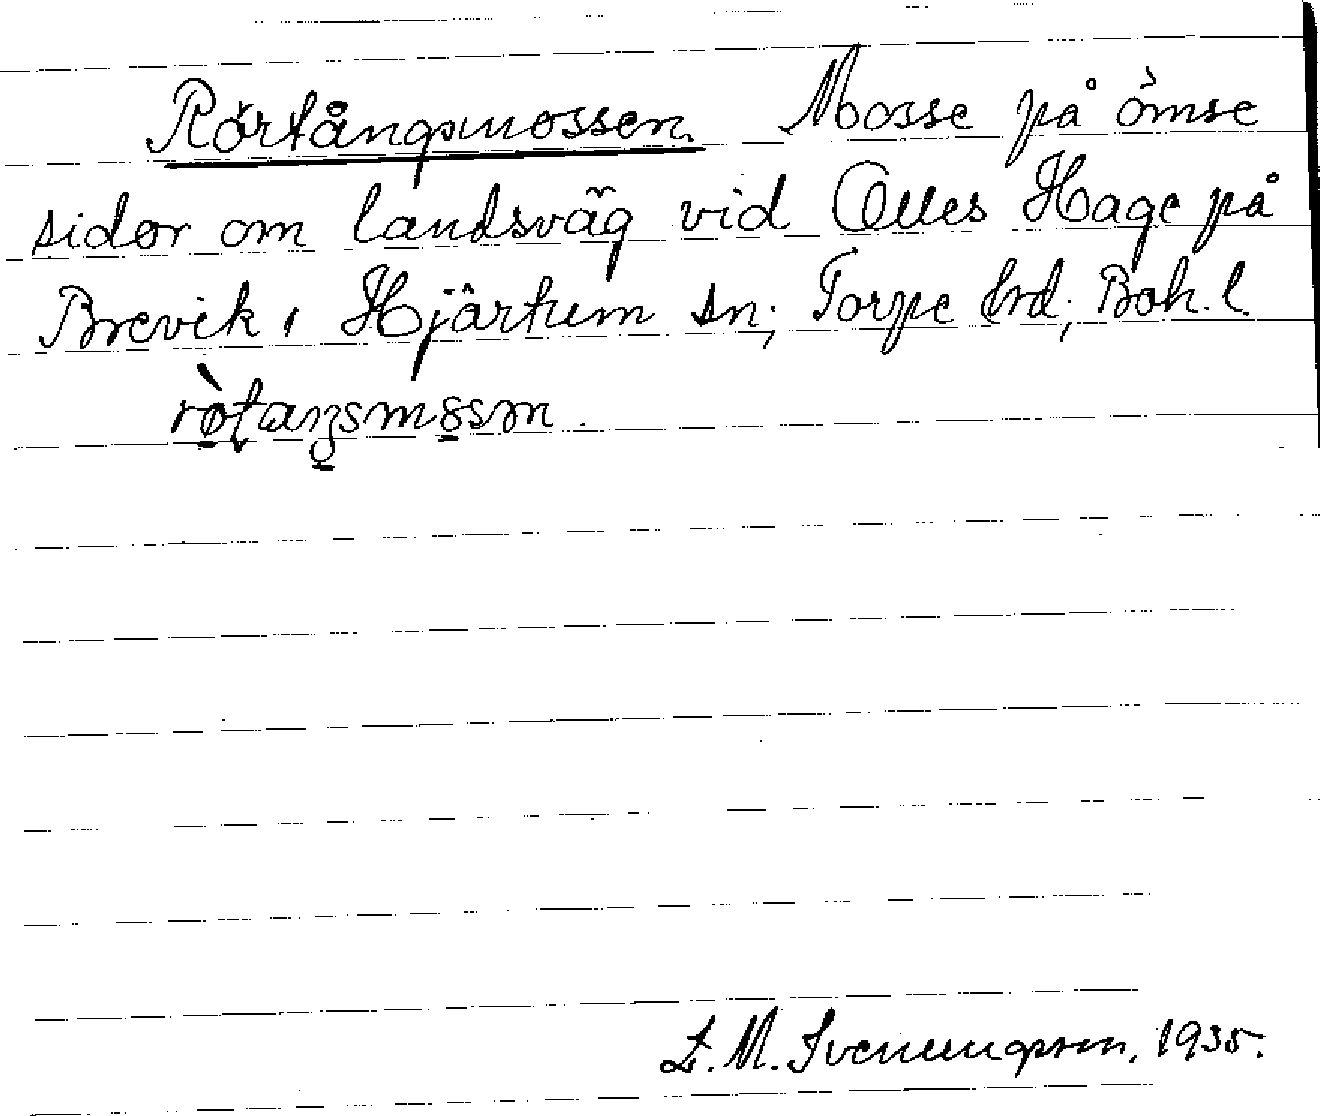 Rörtångsmossen. Mosse på ömse
sidor om landsväg vid Olles Hage på
Brevik i Hjärtum sn; Torpe hrd; Boh. l.
rò̱ʈaŋsmo̱sm.
L. M. Svenungsson, 1935.